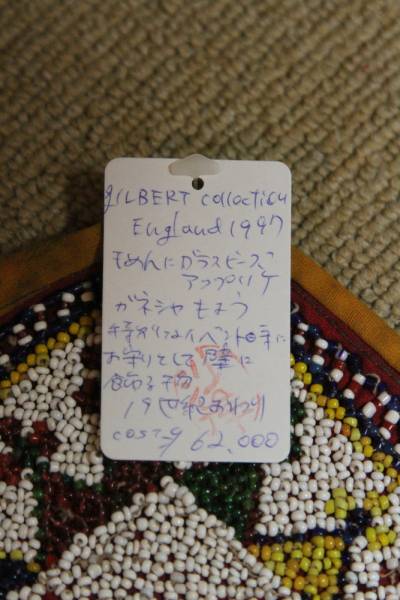 GILBERT collection
England 1997
もめんにガラスビーズ
アップリケ
ガネシャもよう
お守りとして壁に
飾るもの
19世紀おわり
cost 62,000